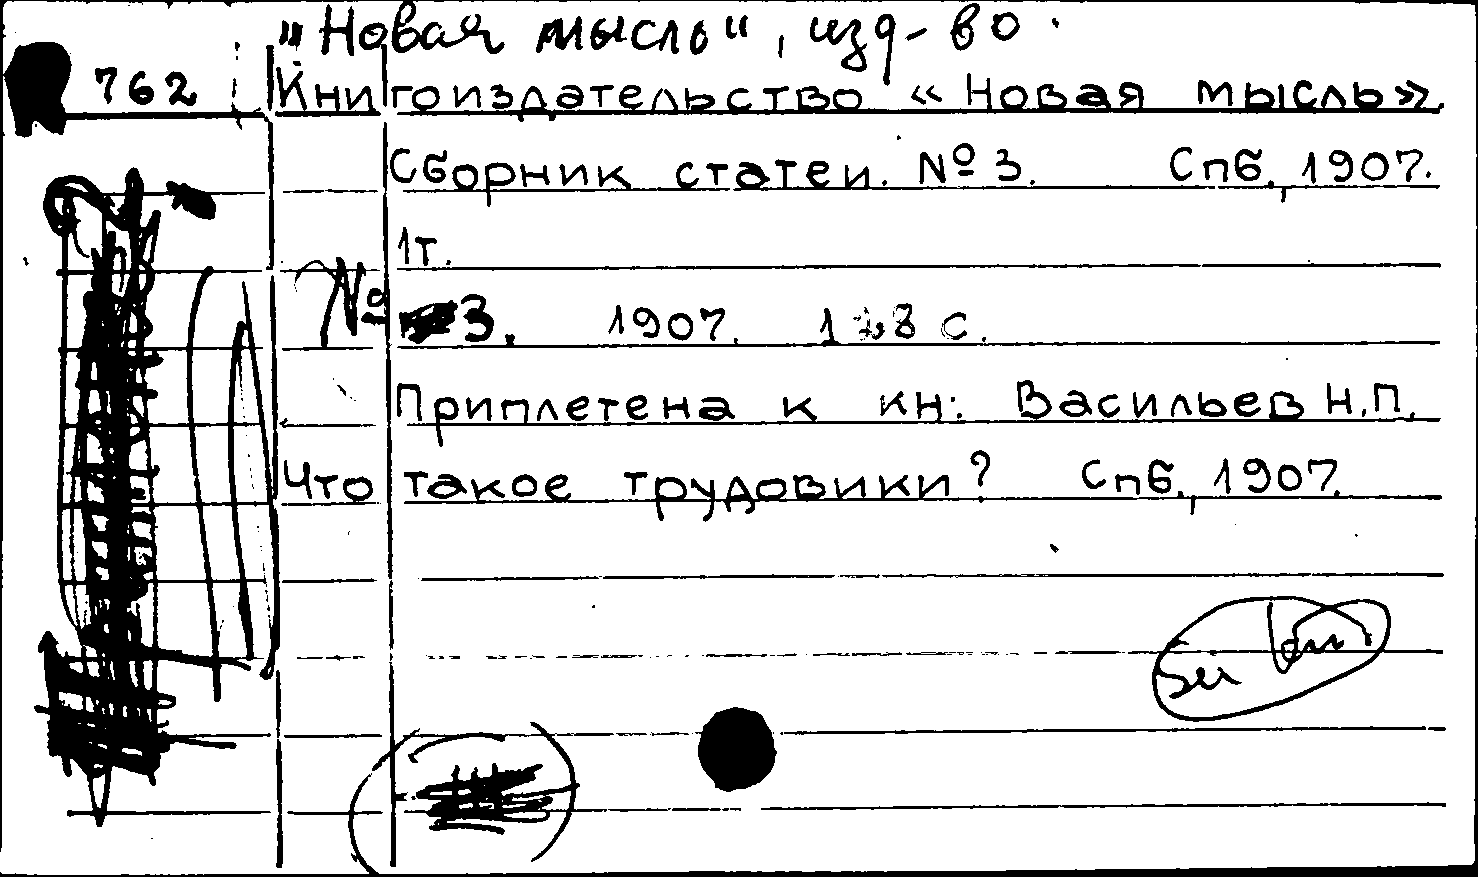 "Новая мысль", изд-во.
762 Книгоиздательство «Новая мысль».
Сборник статей. № 3. Спб., 1907.
1т.
№ 3. 1907. 128 с.
Приплетена к кн: Васильев Н.П.
Что такое трудовики? Спб., 1907.